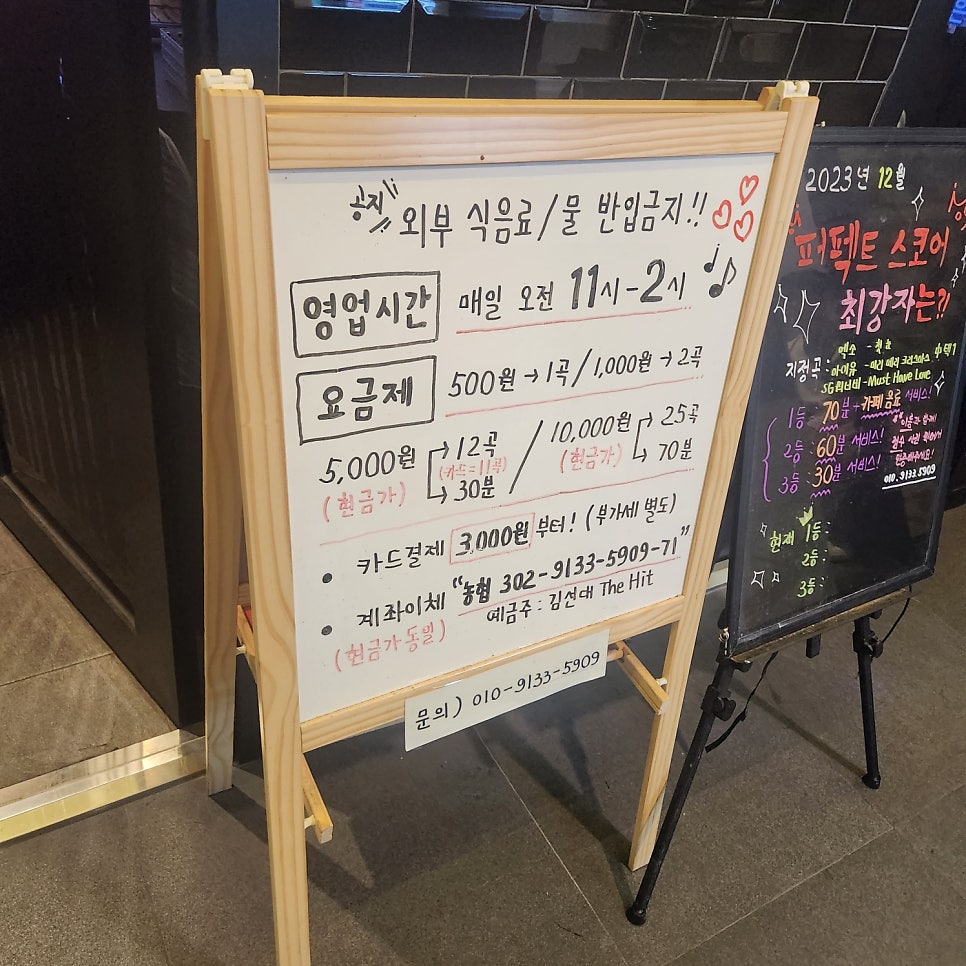 공지 외부 식음료/물 반입금지!!
영업시간 매일 오전 11시-2시
요금제 500원→1곡/1,000원→2곡
5,000원 → 12곡 / 10,000원 → 25곡
(현금가) (카드=11곡) (현금가)
→ 30분 → 70분
• 카드결제 3,000원 부터! (부가세 별도)
• 계좌이체 "농협 302-9133-5909-71"
(현금가 동일) 예금주: 김선대 The Hit
문의) 010-9133-5909
2023년 12월
퍼펙트 스코어
최강자는?!
지정곡: 엑소 - 첫 눈
아이유 - 미리 메리 크리스마스 中 택1
SG워너비 - Must Have Love
1등: 70분+카페 음료 서비스!
2등: 60분 서비스!
3등: 30분 서비스!
010.9133.5909
현재 1등:
2등:
3등: